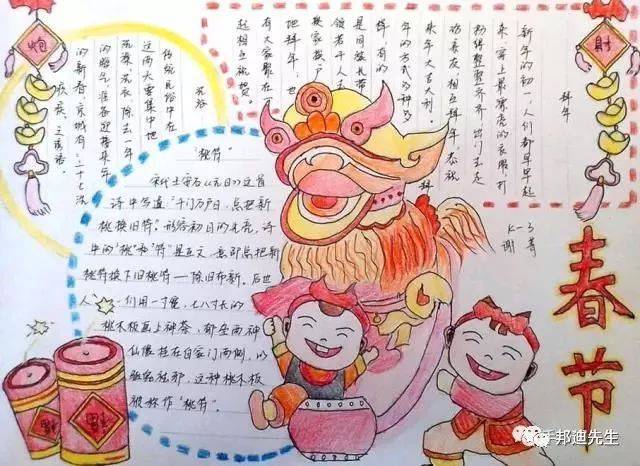 拜年
新年的初一，人们都早早起
来，穿上最漂亮的衣服，打
扮得整整齐齐，出门去走
访亲友，相互拜年，恭祝
来年大吉大利。拜
年的方式多种多
样，有的
是同族长带
领若干人去
挨家挨户
地拜年；也
有大家聚在
起相互祝贺。
洗浴
传统民俗中在
这两天要集中地
洗澡、洗衣，除去一年
的晦气，准备迎接来年
的新春，京城有"二十七洗
疚疾
"桃符"
宋代王安石《元日》这首
诗中写道"千门万户 总把新
桃换旧符"形容初日的光亮，诗
中的"桃"和"符"是互文，意即总把新
桃符换下旧桃符——除旧布新。后世
人们用一寸宽，七八寸长的
桃木板画上神荼、郁垒两神
仙像挂在自家门两侧，以
驱鬼祛邪，这种桃木板
被称作"桃符"。
K-3
谢菁
春节
炮
财
邦迪先生